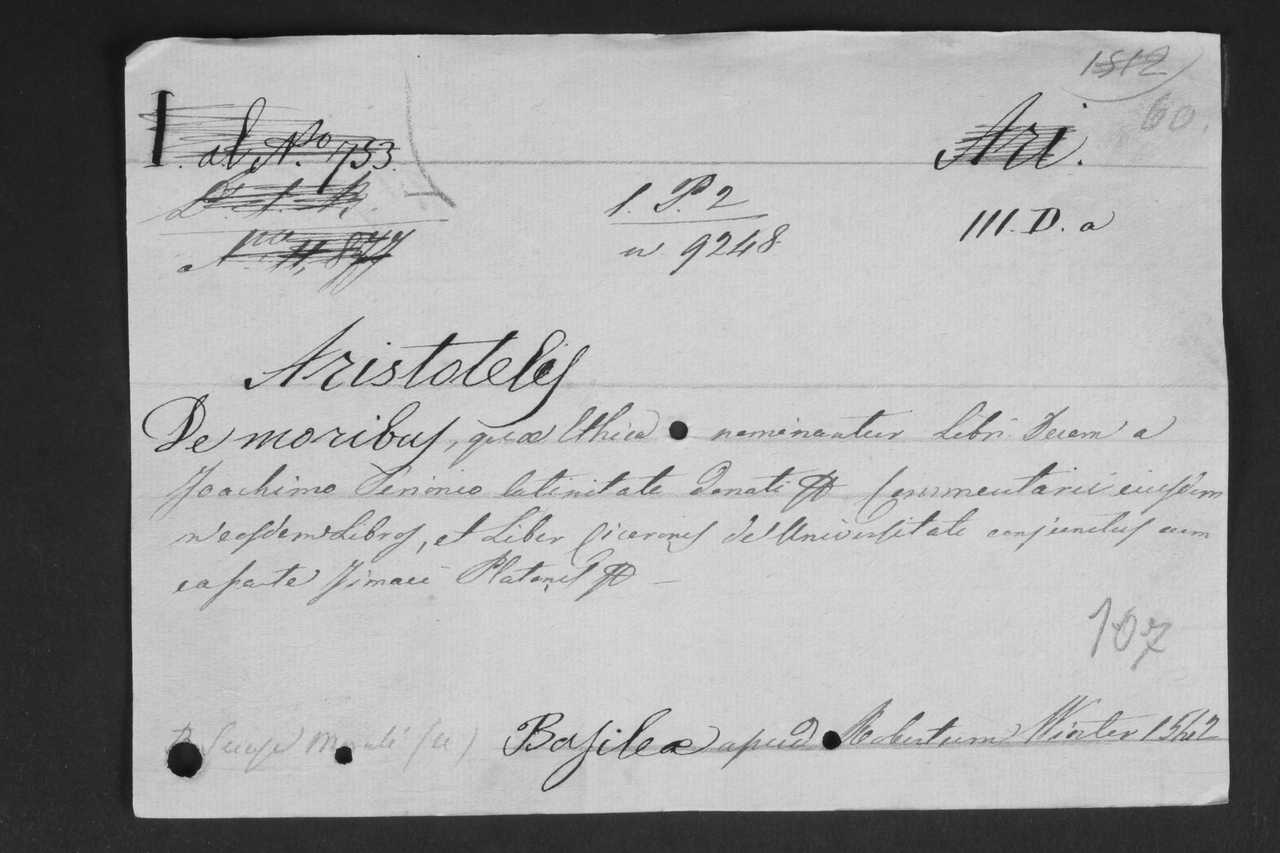 1512
60.
I. al N.º 753.
Ari.
N.ro 11,877
1. P. 2
n 9248
III. D. a
Aristotelis
De moribus, quae Ethica nominantur Libri Decem a
Joachimo Perionio latinitate donati # Commentarii eiusdem
n'eosdem Libros, et Liber Ciceronis de Universitate conjunctus cum
ea parte Timaei Platonis # —
107
Basileae apud Robertum Winter 1542